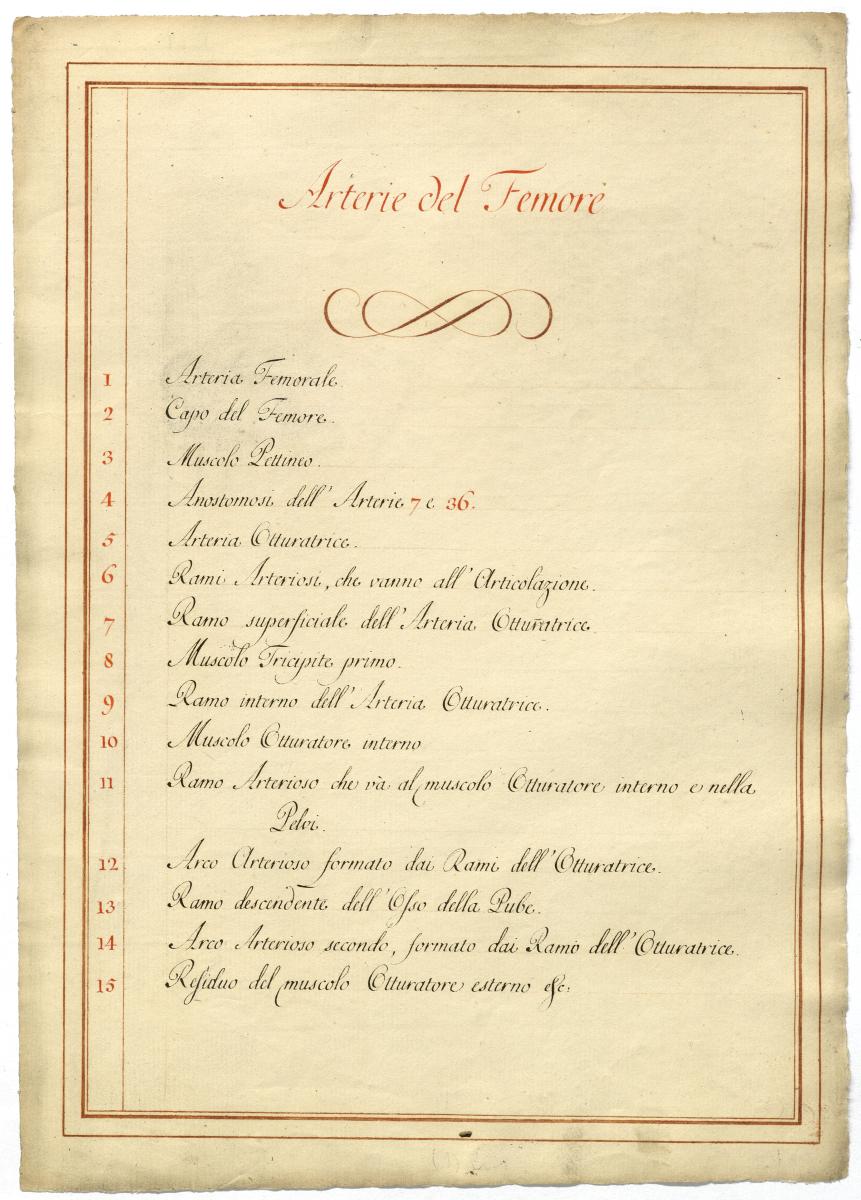 Arterie del Femore
1 Arteria Femorale.
2 Capo del Femore.
3 Muscolo Pettineo.
4 Anostomosi dell' Arterie 7 e 36.
5 Arteria Otturatrice.
6 Rami Arteriosi, che vanno all' Articolazione.
7 Ramo superficiale dell' Arteria Otturatrice.
8 Muscolo Tricipite primo.
9 Ramo interno dell' Arteria Otturatrice.
10 Muscolo Otturatore interno
11 Ramo Arterioso che và al muscolo Otturatore interno e nella
Pelvi.
12 Arco Arterioso formato dai Rami dell' Otturatrice.
13 Ramo descendente dell' Osso della Pube.
14 Arco Arterioso secondo, formato dai Ramo dell' Otturatrice.
15 Residuo del muscolo Otturatore esterno &c: